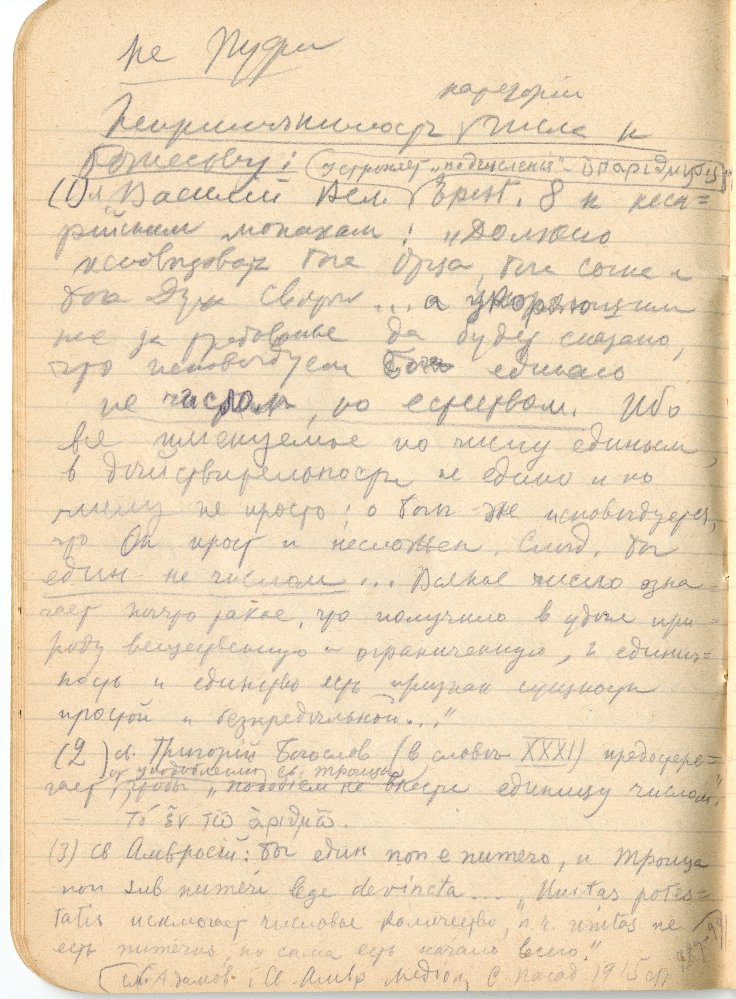 не
категории
Неприложимость числа к
Божеству: (устраняет „подчисление"
(1) Василий Вел. Epist. 8 к кеса=
рійским монахам: „Должно
исповедовать Бога Отца, Бога Сына и
Бога Духа Свят. ... а укоряющим
нас за требовніе да будет сказано,
что исповедуем Бога единаго
не числом, но естеством. Ибо
все именуемое по числу единым,
в действительности не едино и по
числу не просто; о Боге же исповедуется,
что Он прост и несложен. След. Бог
един не числом ... Всякое число озна=
чает нечто такое, что получило в удел при=
роду вещественную и ограниченную, а единич=
ность и единство есть признак сущности
простой и безпредельной..."
(2) св. Григорій Богослов (в слове XXXI) предостере=
от уподобления св. Троицы
гает, чтобы внести единицу числом"
= τὸ ἓν τῷ ἀριθμῷ.
(3) св Амвросий: Бог един non e numero, и Троица
non sub numeri lege devincta ... „Unitas potes=
tatis исключает числовое количество, п. ч. unitas не
есть numerus, но сама есть начало всего."
(см. Адамов. Св. Амвр. Медіол. С. Посад 1915 стр